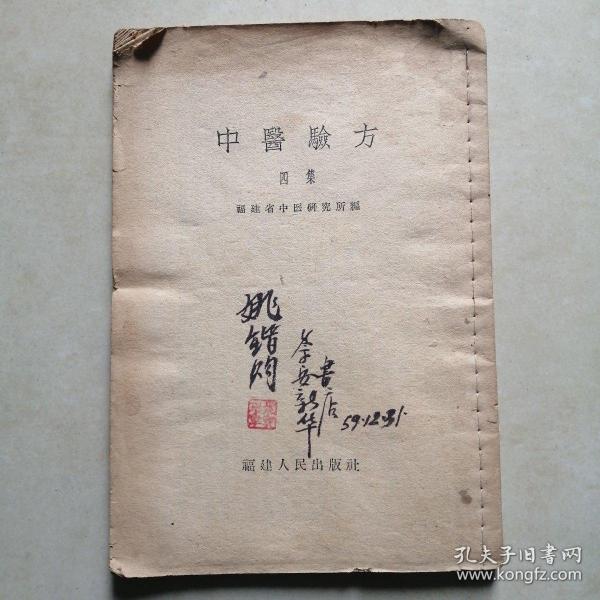 中醫驗方
四集
福建省中医研究所編
姚錯
新华
書店
59.12.31.
福建人民出版社
孔夫子旧書网
www.kongfz.com